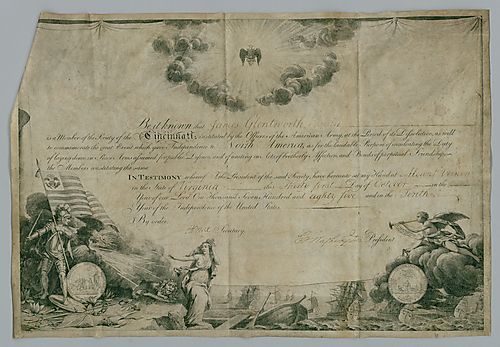 Be it known that James Glentworth
is a Member of the Society of the Cincinnati; instituted by the Officers of the American Army, at the Period of its Dissolution, as well
to commemorate the great Event which gave Independence to North America, as for the laudable Purpose of inculcating the Duty
of laying down in Peace Arms assumed for public Defence, and of uniting in Acts of brotherly Affection, and Bonds of perpetual Friendship,
the Members constituting the same.
In Testimony whereof I, the President of the said Society, have hereunto set my Hand at Mount Vernon
in the State of Virginia this Thirty first Day of October in the
Year of our Lord One Thousand Seven Hundred and Eighty five and in the Tenth
Year of the Independence of the United States.
By order,
Secretary.
President